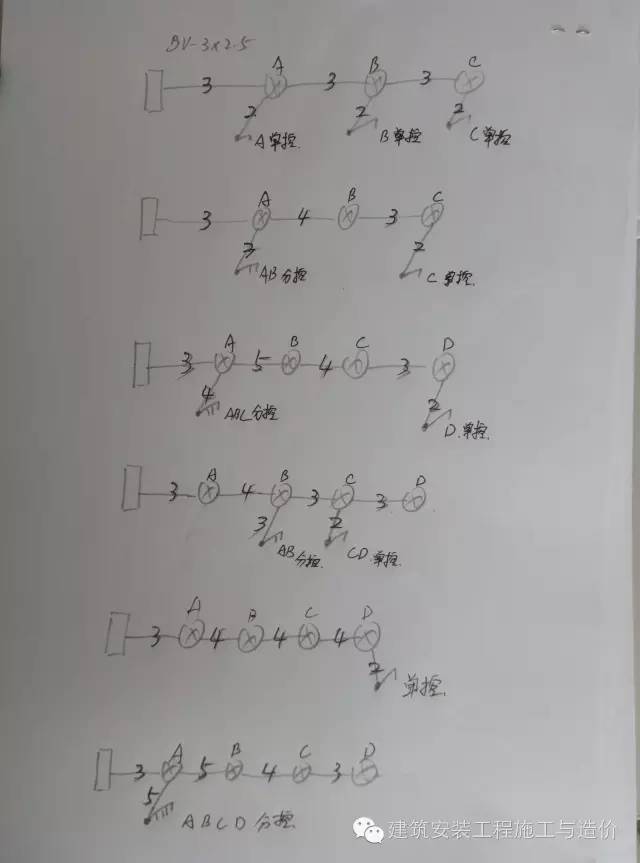 BV-3×2.5
A B C
3 3 3
2 2 2
A单控. B单控 C单控
A B C
3 4 3
3 2
AB分控 C单控.
A B C D
3 5 4 3
4 2
ABC分控 D.单控.
A B C D
3 4 3 3
3 2
AB分控. CD.单控.
A B C D
3 4 4 4
2
单控.
A B C D
3 5 4 3
5
ABCD分控.
建筑安装工程施工与造价